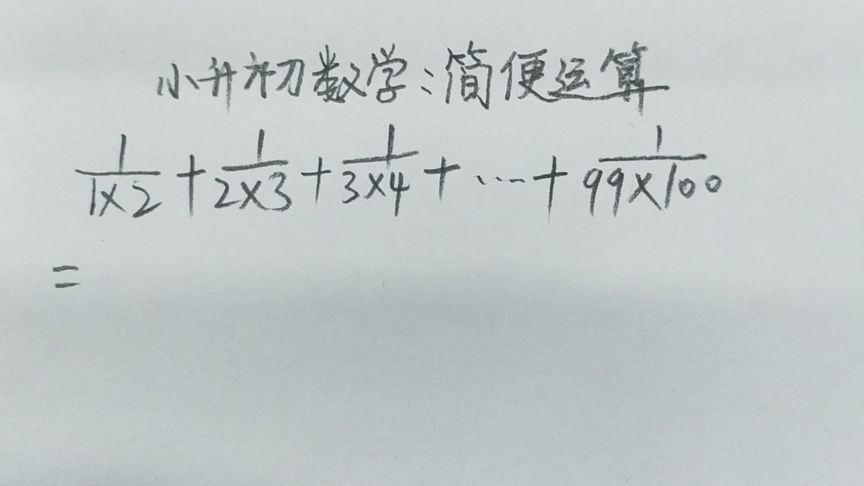 小升初数学:简便运算
1/1×2 + 1/2×3 + 1/3×4 + ... + 1/99×100
=